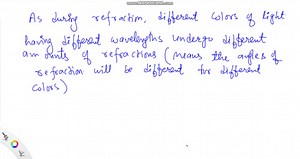 As during refraction, different colors of light
having different wavelengths undergo different
amounts of refractions (means the angles of
refraction will be different for different
colors)